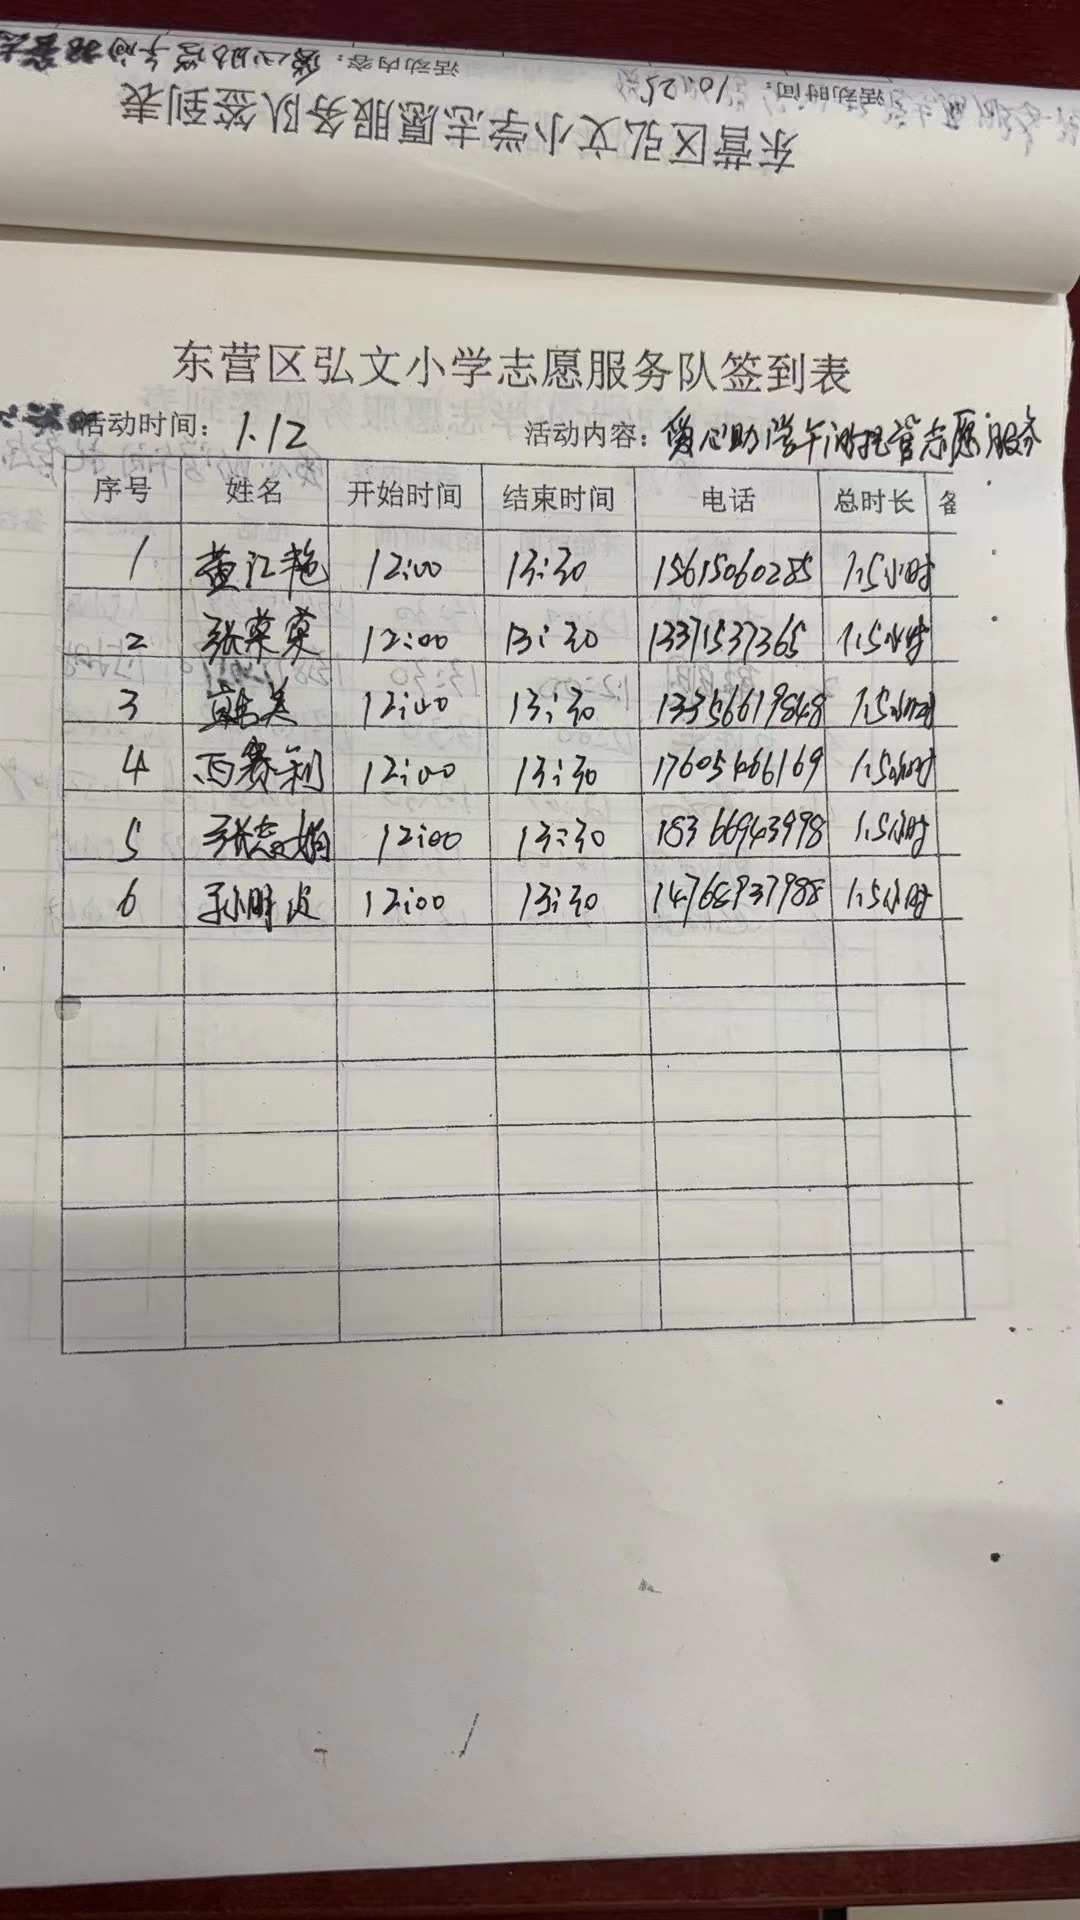 东营区弘文小学志愿服务队签到表
活动时间: 10.25 活动内容:
东营区弘文小学志愿服务队签到表
活动时间: 1.12 活动内容: 爱心助学午间托管志愿服务
序号 姓名 开始时间 结束时间 电话 总时长 备
1 黄江艳 12:00 13:30 15615060285 1.5小时
2 张荣荣 12:00 13:30 13371537365 1.5小时
3 12:00 13:30 13356619848 1.5小时
4 12:00 13:30 17605466169 1.5小时
5 12:00 13:30 18366943998 1.5小时
6 12:00 13:30 14768937988 1.5小时